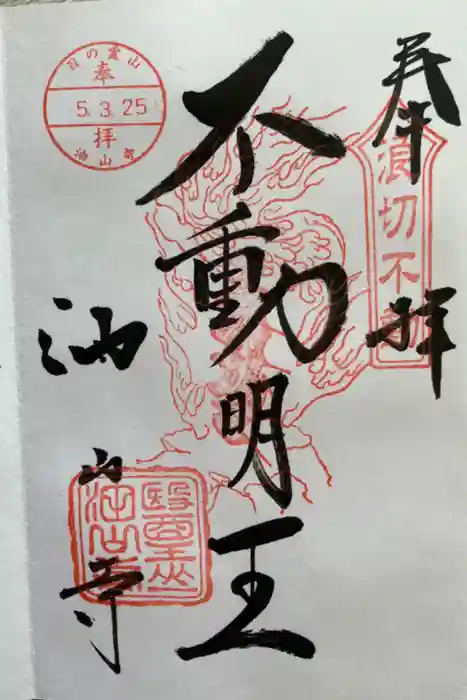 奉拝
浪切不動
不動明王
目の霊山
奉
5.3.25
拝
油山寺
油山寺